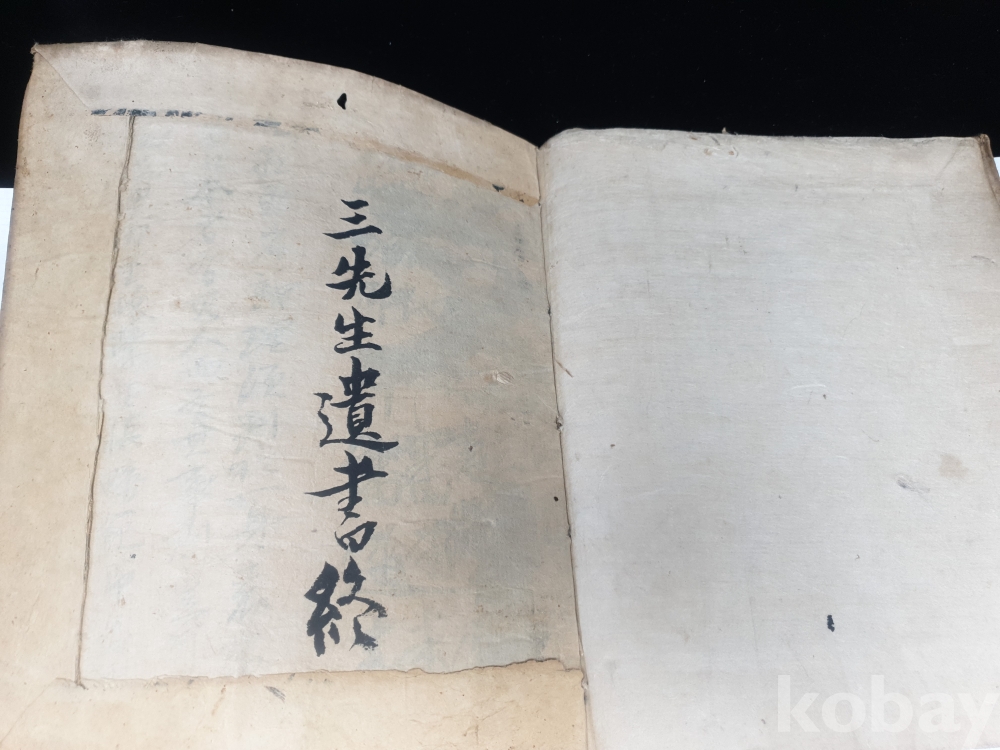 三先生遺書終
kobay